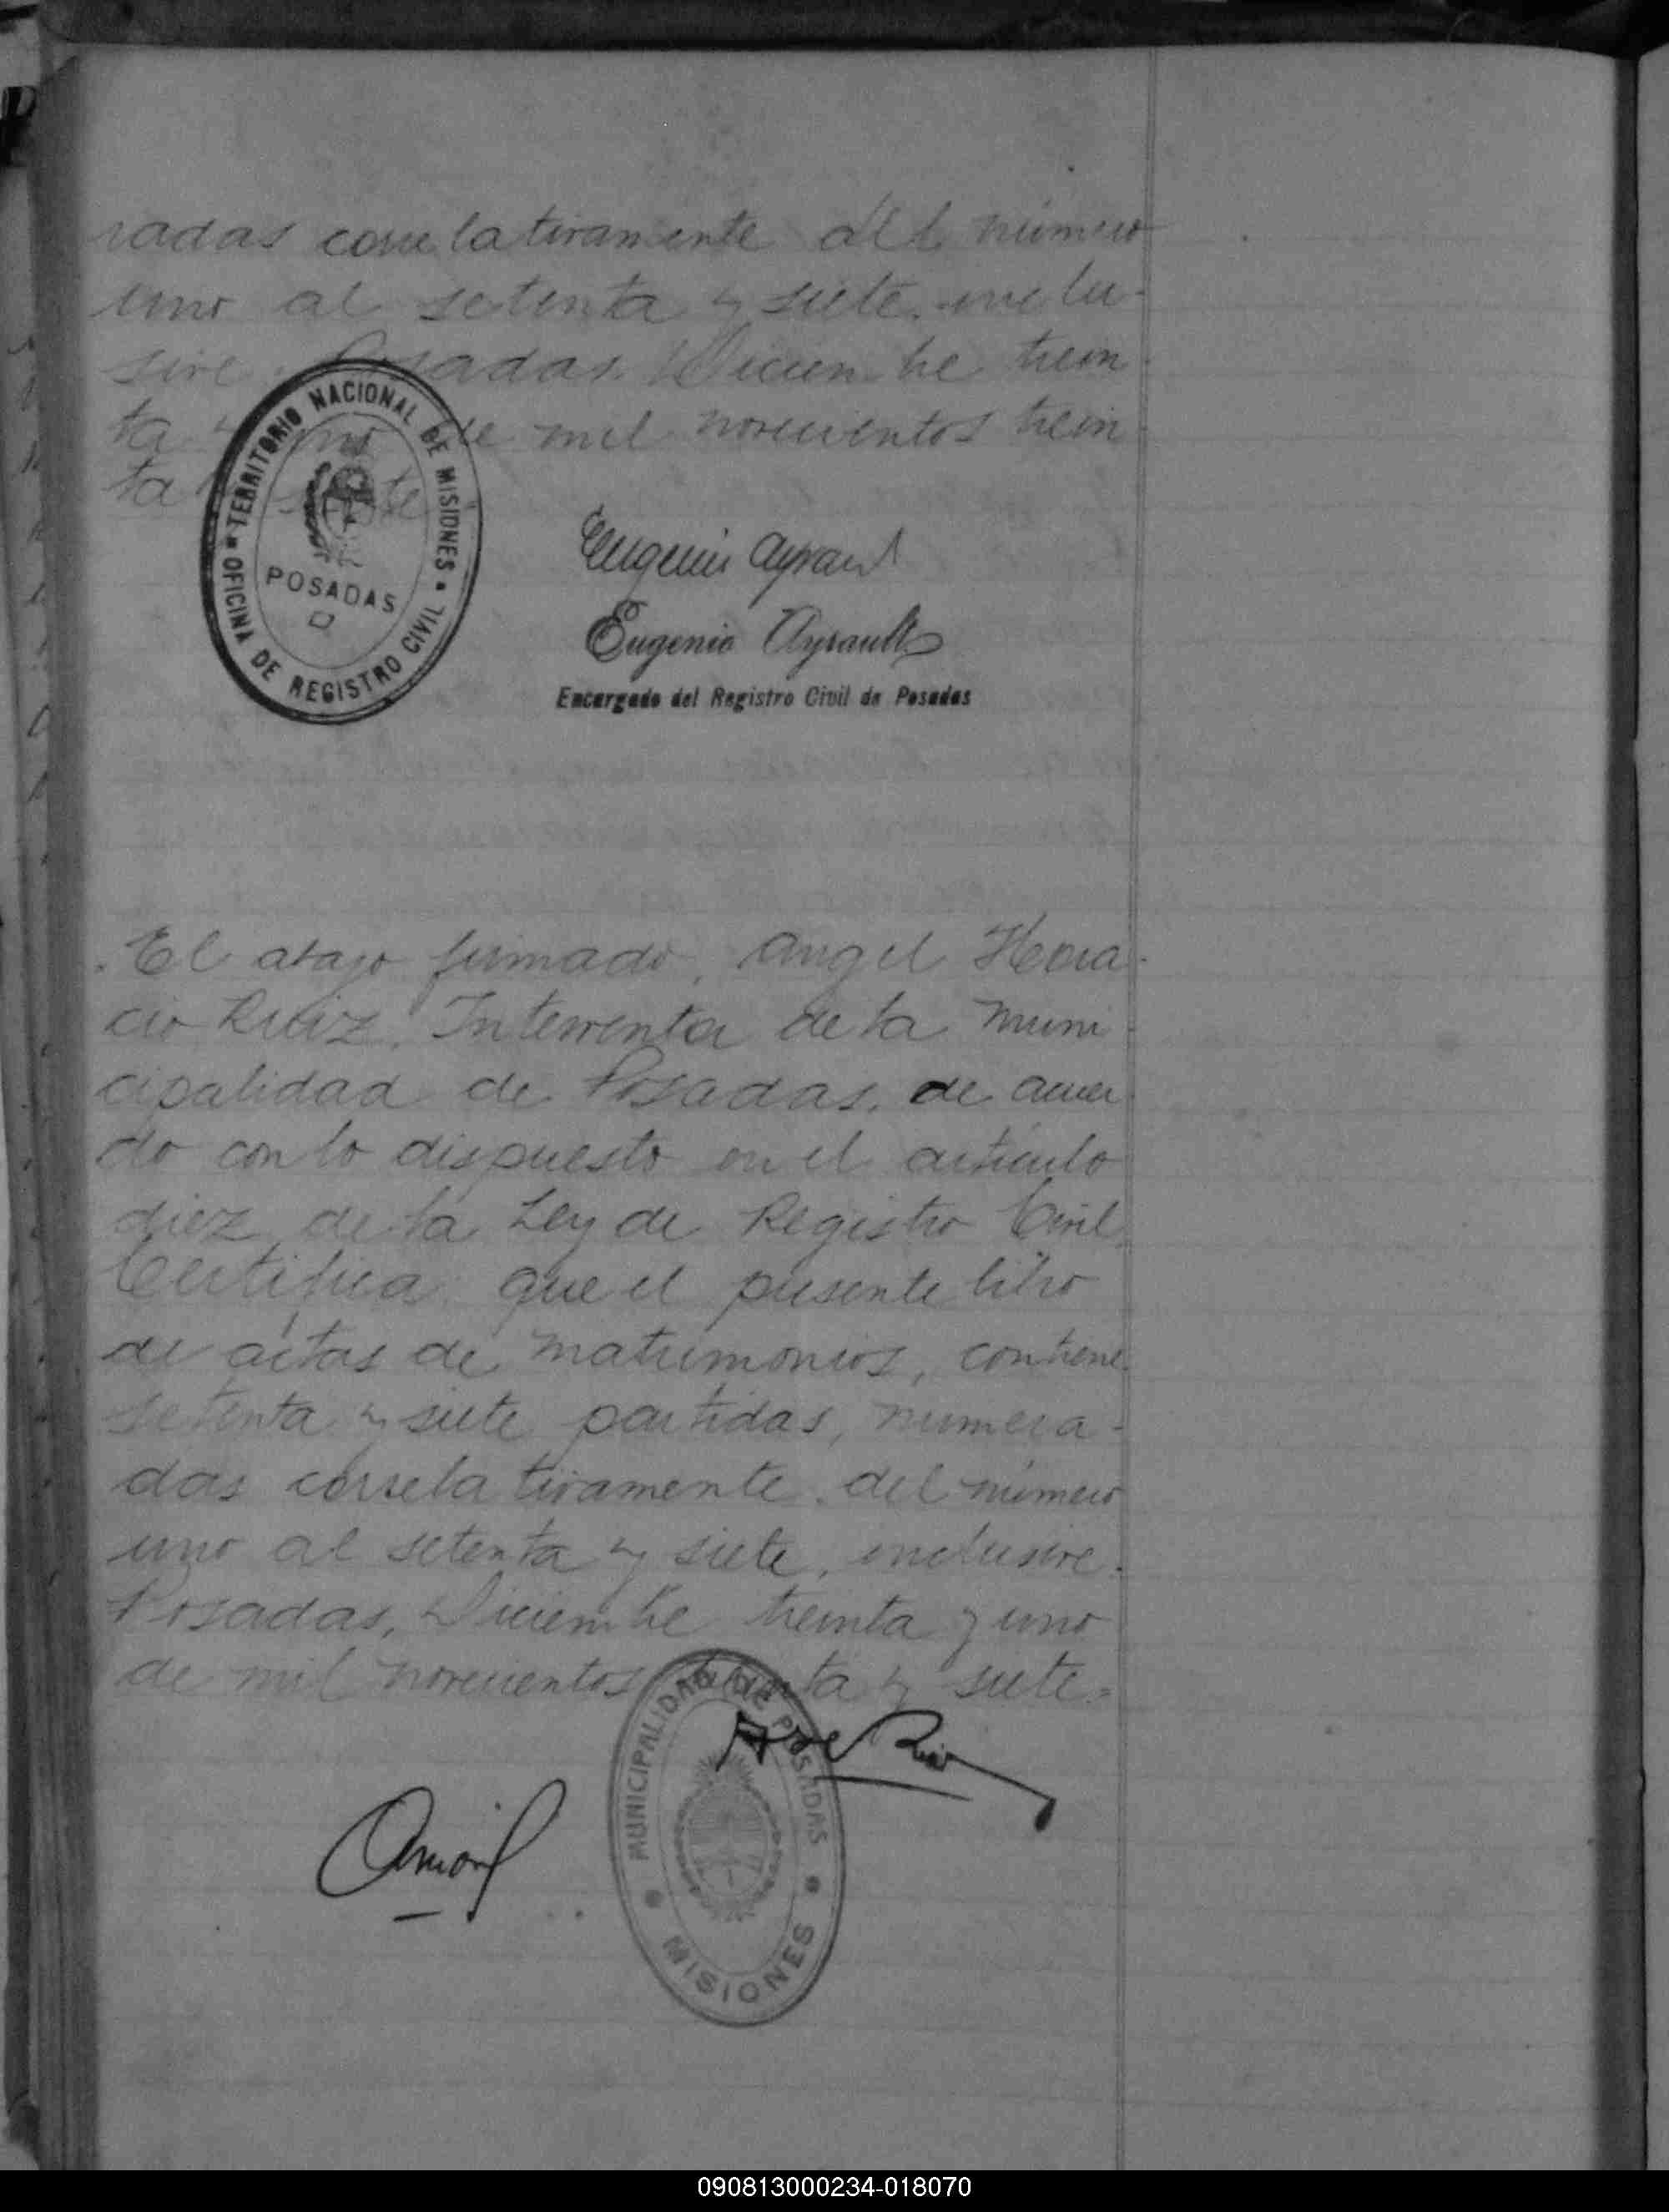 radas correlativamente del número
uno al setenta y siete inclu-
sive. Posadas, Diciembre trein-
ta y uno de mil novecientos trein-
ta y siete
TERRITORIO NACIONAL DE MISIONES
OFICINA DE REGISTRO CIVIL
POSADAS
Eugenio Ayrault
Eugenio Ayrault
Encargado del Registro Civil de Posadas
El abajo firmado, Angel Hora-
cio Ruiz, Interventor de la Muni-
cipalidad de Posadas, de acuer-
do con lo dispuesto en el artículo
diez de la Ley de Registro Civil,
Certifica que el presente libro
de actas de matrimonios, contiene
setenta y siete partidas, numera-
das correlativamente del número
uno al setenta y siete, inclusive.
Posadas, Diciembre treinta y uno
de mil novecientos treinta y siete.
MUNICIPALIDAD DE POSADAS
MISIONES
090813000234-018070